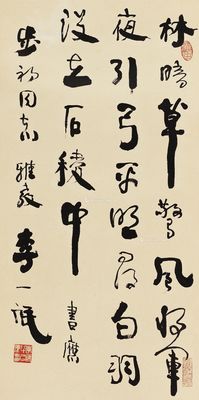 林暗草驚風將軍
夜引弓平明尋白羽
没在石稜中 書應
同志雅教 李一氓